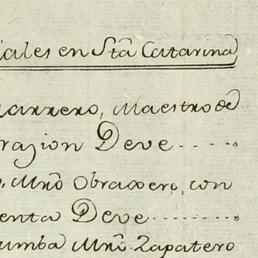 iales en Sta Catarina
Marrero, Maestro de
razion Deve ..... "
, Mro Obraxero, con
enta Deve ........ "
umba Mro Zapatero